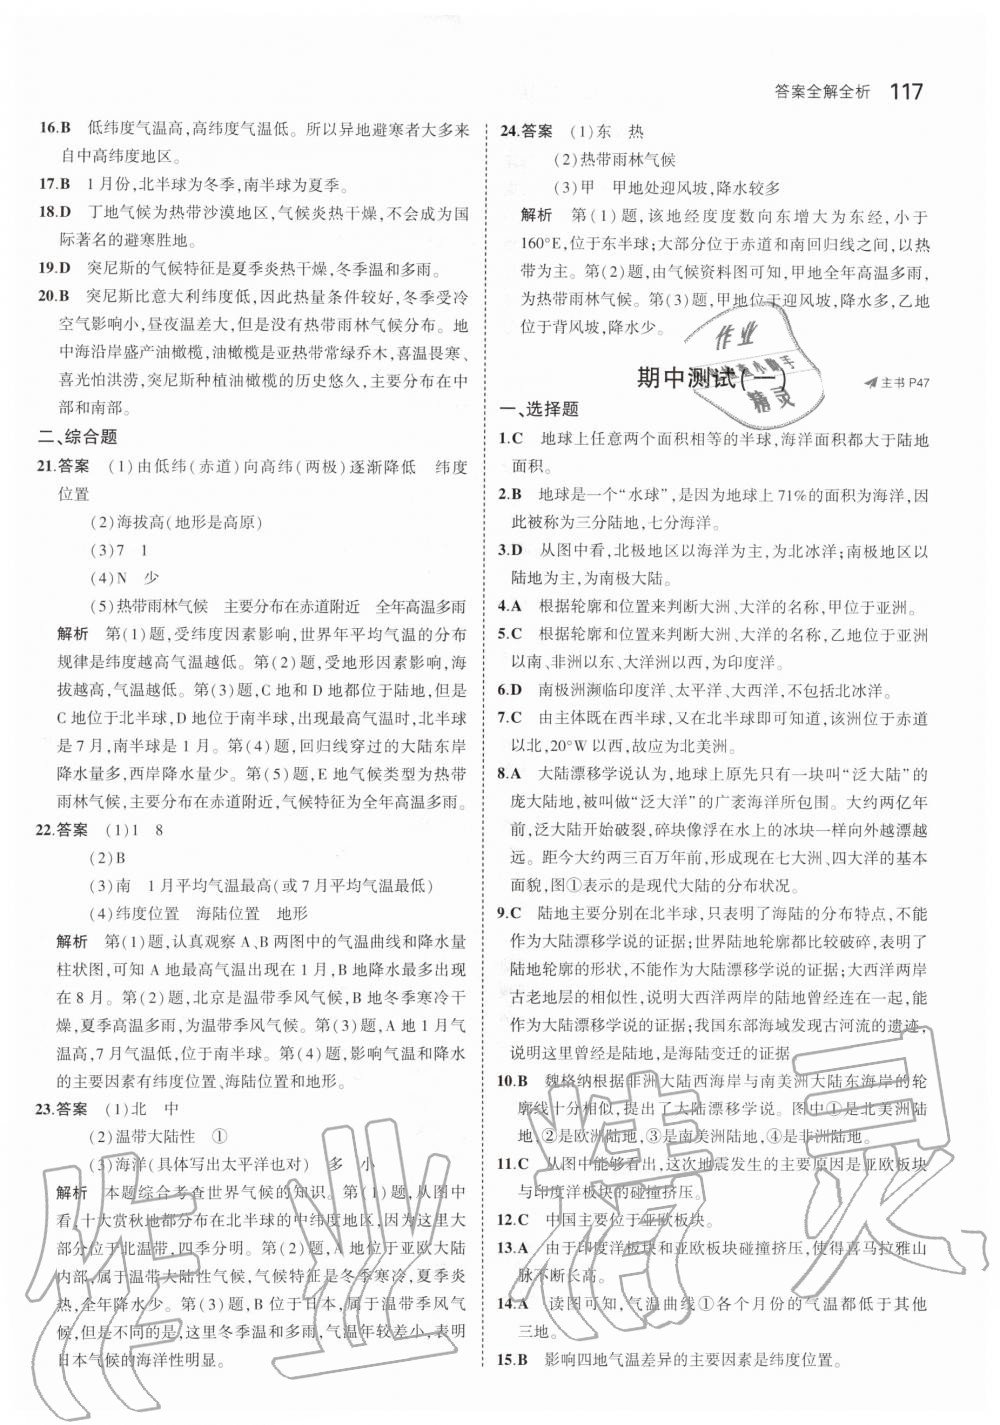 答案全解全析 117
16.B 低纬度气温高,高纬度气温低。所以异地避寒者大多来
自中高纬度地区。
17.B 1月份,北半球为冬季,南半球为夏季。
18.D 丁地气候为热带沙漠地区,气候炎热干燥,不会成为国
际著名的避寒胜地。
19.D 突尼斯的气候特征是夏季炎热干燥,冬季温和多雨。
20.B 突尼斯比意大利纬度低,因此热量条件较好,冬季受冷
空气影响小,昼夜温差大,但是没有热带雨林气候分布。地
中海沿岸盛产油橄榄,油橄榄是亚热带常绿乔木,喜温畏寒、
喜光怕洪涝,突尼斯种植油橄榄的历史悠久,主要分布在中
部和南部。
二、综合题
21.答案 (1)由低纬(赤道)向高纬(两极)逐渐降低 纬度
位置
(2)海拔高(地形是高原)
(3)7 1
(4)N 少
(5)热带雨林气候 主要分布在赤道附近 全年高温多雨
解析 第(1)题,受纬度因素影响,世界年平均气温的分布
规律是纬度越高气温越低。第(2)题,受地形因素影响,海
拔越高,气温越低。第(3)题,C地和D地都位于陆地,但是
C地位于北半球,D地位于南半球,出现最高气温时,北半球
是7月,南半球是1月。第(4)题,回归线穿过的大陆东岸
降水量多,西岸降水量少。第(5)题,E地气候类型为热带
雨林气候,主要分布在赤道附近,气候特征为全年高温多雨。
22.答案 (1)1 8
(2)B
(3)南 1月平均气温最高(或7月平均气温最低)
(4)纬度位置 海陆位置 地形
解析 第(1)题,认真观察A、B两图中的气温曲线和降水量
柱状图,可知A地最高气温出现在1月,B地最多降水出现
在8月。第(2)题,北京是温带季风气候,B地冬季寒冷干
燥,夏季高温多雨,为温带季风气候。第(3)题,A地1月气
温高,7月气温低,位于南半球。第(4)题,影响气温和降水
的主要因素有纬度位置、海陆位置和地形。
23.答案 (1)北 中
(2)温带大陆性 ①
(3)海洋(具体写出太平洋也对) 多 小
解析 本题综合考查世界气候的知识。第(1)题,从图中
看,十大赏秋地都分布在北半球的中纬度地区,因为这里大
部分位于北温带,四季分明。第(2)题,A地位于亚欧大陆
内部,属于温带大陆性气候,气候特征为冬季寒冷,夏季炎
热,全年降水少。第(3)题,B位于日本,属于温带季风气
候,但是不同的是,这里冬季温和多雨,气温年较差小,表明
日本气候的海洋性明显。
24.答案 (1)东 热
(2)热带雨林气候
(3)甲 甲地处迎风坡,降水较多
解析 第(1)题,该地经度度数向东增大为东经,小于
160°E,位于东半球;大部分位于赤道和南回归线之间,以热
带为主。第(2)题,由气候资料图可知,甲地全年高温多雨,
为热带雨林气候。第(3)题,甲地位于迎风坡,降水多,乙地
位于背风坡,降水少。
期中测试(一) 主书P47
一、选择题
1.C 地球上任意两个面积相等的半球,海洋面积都大于陆地
面积。
2.B 地球是一个“水球”,是因为地球上71%的面积为海洋,因
此被称为三分陆地,七分海洋。
3.D 从图中看,北极地区以海洋为主,为北冰洋;南极地区以
陆地为主,为南极大陆。
4.A 根据轮廓和位置来判断大洲、大洋的名称,甲位于亚洲。
5.C 根据轮廓和位置来判断大洲、大洋的名称,乙地位于亚洲
以南、非洲以东、大洋洲以西,为印度洋。
6.D 南极洲濒临印度洋、太平洋、大西洋,不包括北冰洋。
7.C 由主体既在西半球,又在北半球即可知道,该洲位于赤道
以北,20°W以西,故应为北美洲。
8.A 大陆漂移学说认为,地球上原先只有一块叫“泛大陆”的
庞大陆地,被叫做“泛大洋”的广袤海洋所包围。大约两亿年
前,泛大陆开始破裂,碎块像浮在水上的冰块一样向外越漂越
远。距今大约两三百万年前,形成现在七大洲、四大洋的基本
面貌,图①表示的是现代大陆的分布状况。
9.C 陆地主要分别在北半球,只表明了海陆的分布特点,不能
作为大陆漂移学说的证据;世界陆地轮廓都比较破碎,表明了
陆地轮廓的形状,不能作为大陆漂移学说的证据;大西洋两岸
古老地层的相似性,说明大西洋两岸的陆地曾经连在一起,能
作为大陆漂移学说的证据;我国东部海域发现古河流的遗迹,
说明这里曾经是陆地,是海陆变迁的证据
10.B 魏格纳根据非洲大陆西海岸与南美洲大陆东海岸的轮
廓线十分相似,提出了大陆漂移学说。图中①是北美洲陆
地,②是欧洲陆地,③是南美洲陆地,④是非洲陆地。
11.C 从图中能够看出,这次地震发生的主要原因是亚欧板块
与印度洋板块的碰撞挤压。
12.C 中国主要位于亚欧板块。
13.A 由于印度洋板块和亚欧板块碰撞挤压,使得喜马拉雅山
脉不断长高。
14.A 读图可知,气温曲线①各个月份的气温都低于其他
三地。
15.B 影响四地气温差异的主要因素是纬度位置。
作业
精灵
作业精灵